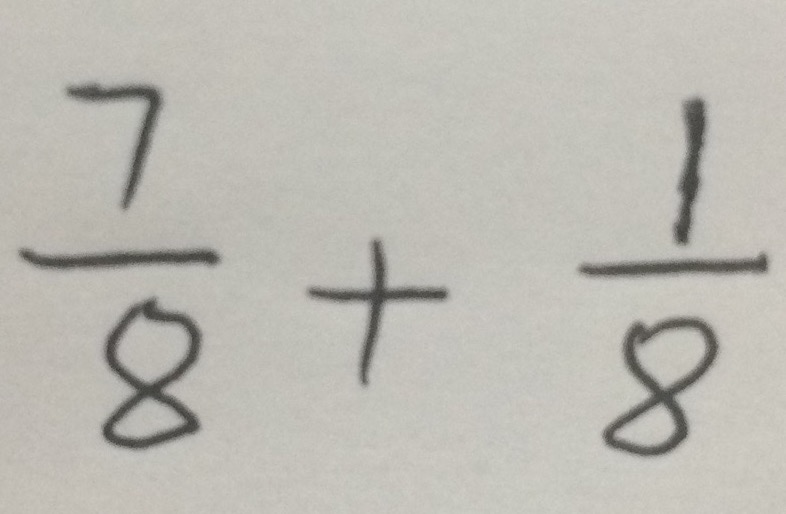 7/8 + 1/8